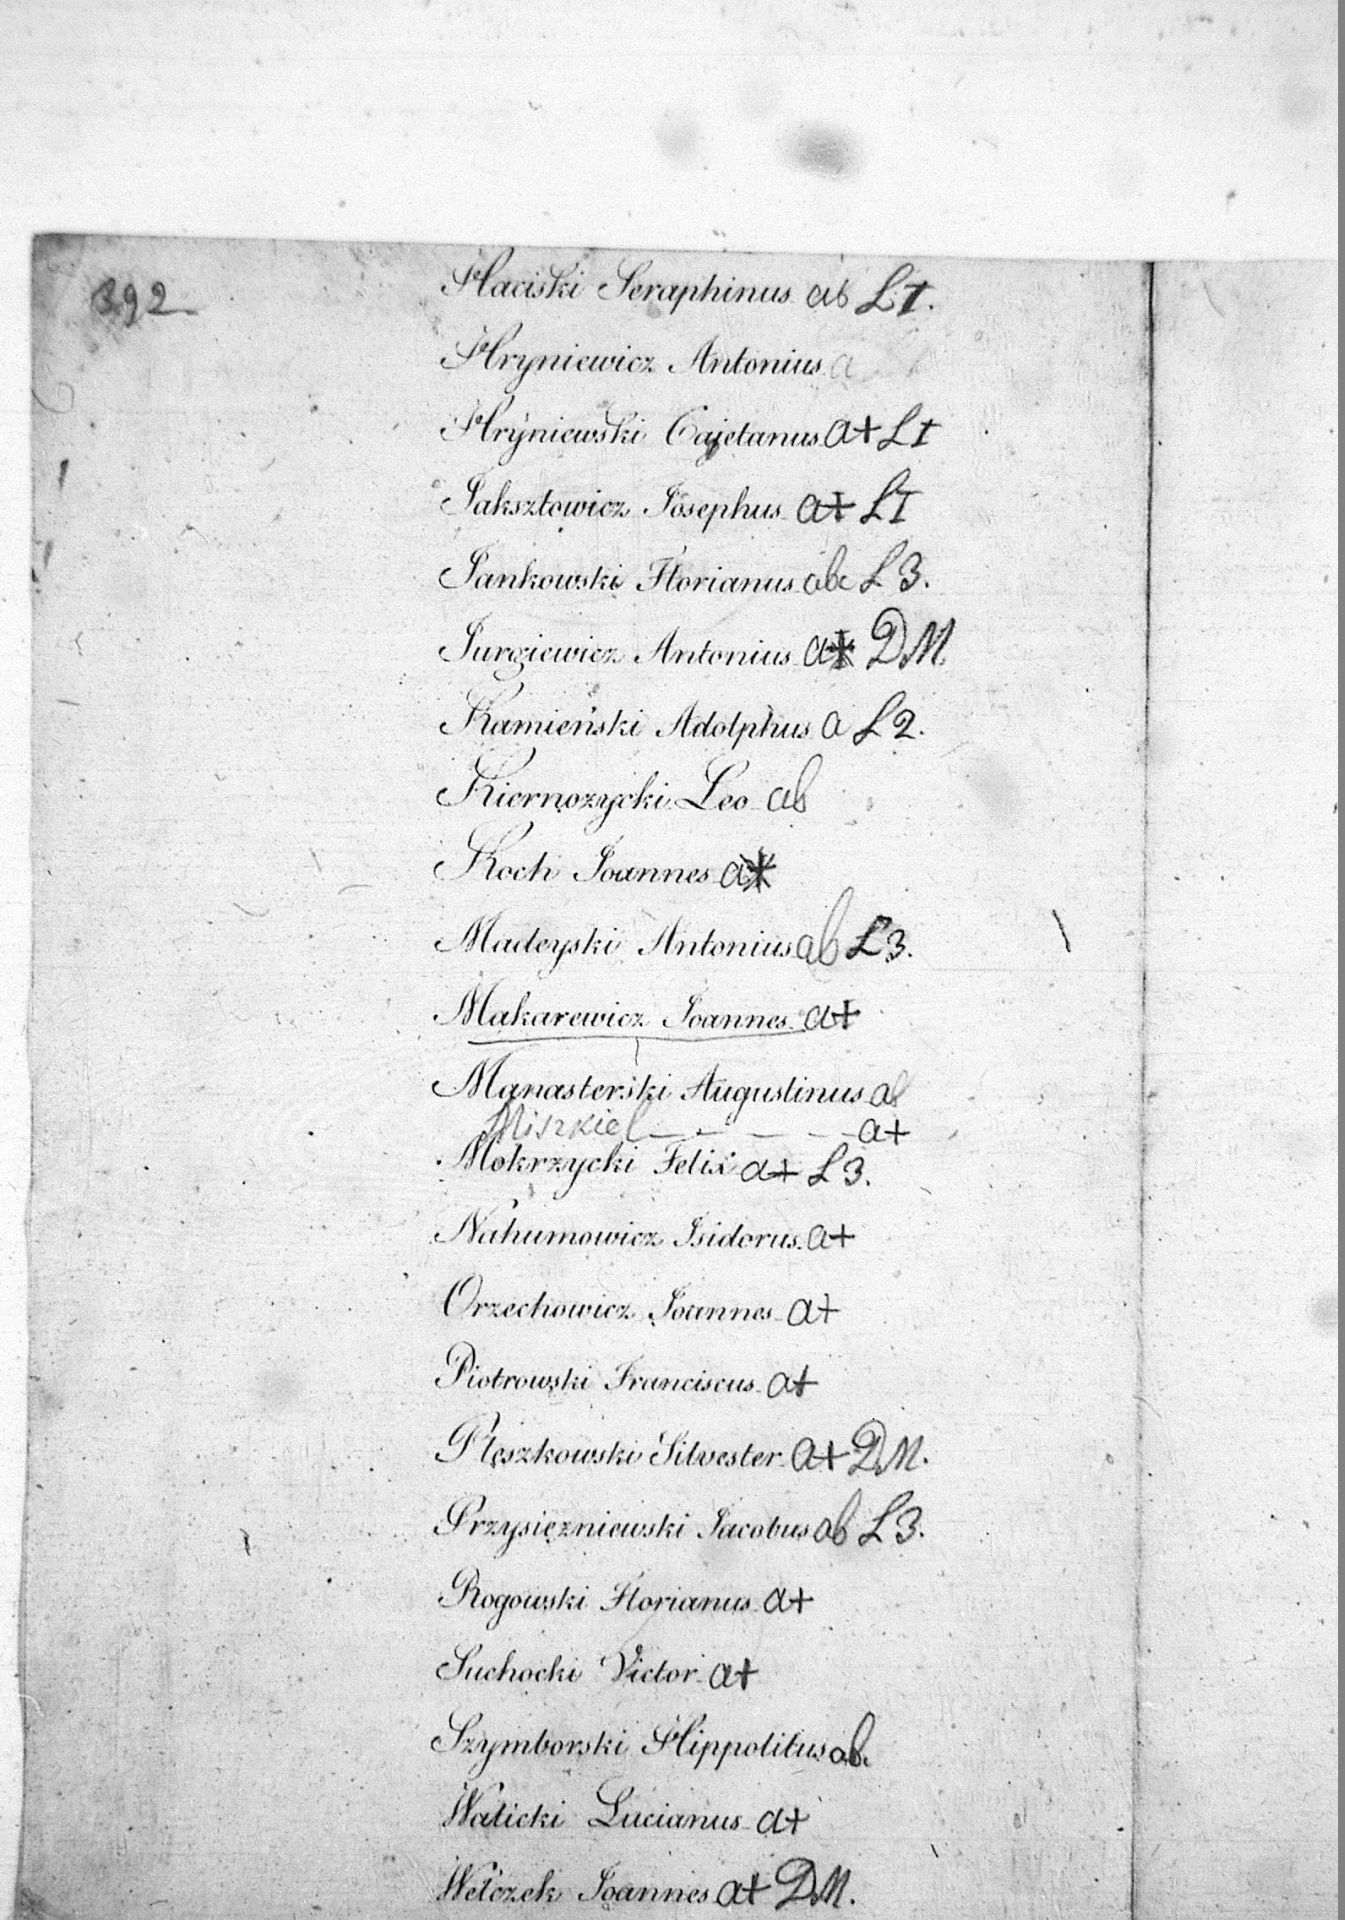 392
Haciski Seraphinus ab L I.
Hryniewicz Antonius a
Hryniewski Cajetanus a+ L I
Jaksztowicz Josephus a+ L I
Jankowski Florianus ab L 3.
Jurgiewicz Antonius a+ DM
Kamieński Adolphus a L 2.
Kiernozycki Leo ab
Koch Joannes a+
Madeyski Antonius ab L 3.
Makarewicz Joannes a+
Manasterski Augustinus ab
Miszkiel - - - - a+
Mokrzycki Felix a+ L 3.
Nahumowicz Isidorus a+
Orzechowicz Joannes a+
Piotrowski Franciscus a+
Pleszkowski Silvester a+ DM.
Przysięzniewski Jacobus ab L 3.
Rogowski Florianus a+
Suchocki Victor a+
Szymborski Hippolitus ab.
Walicki Lucianus a+
Welczek Joannes a+ DM.